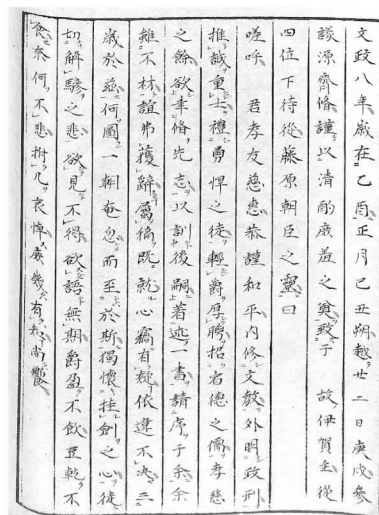 文政八年歳在乙酉正月己丑朔越廿二日庚戌參
議源齊脩謹以清酌庶羞之奠致于　故伊賀主從
四位下侍從藤原朝臣之靈曰
嗟呼　君孝友慈惠恭謹和平内修文教外明政刑
推誠重士禮勇悍之徒輕爵厚聘招宿德之儒孝慈
之餘欲聿脩先志以訓後嗣著述一書請序于余余
雖不材誼弗獲辭屬稿既就心竊有疑依違不決三
歳於茲何圖一朝奄忽而至於斯獨懷挂劍之心徒
切解驂之悲欲見不得欲語無期爵盈不飲豆乾不
食奈何不悲拊几哀悼庶幾有知尚饗